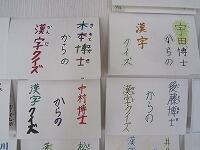 宇田博士
からの
漢字
クイズ
木本博士
からの
漢字クイズ
後藤博士
からの
漢字クイズ
中村博士
からの
漢字クイズ